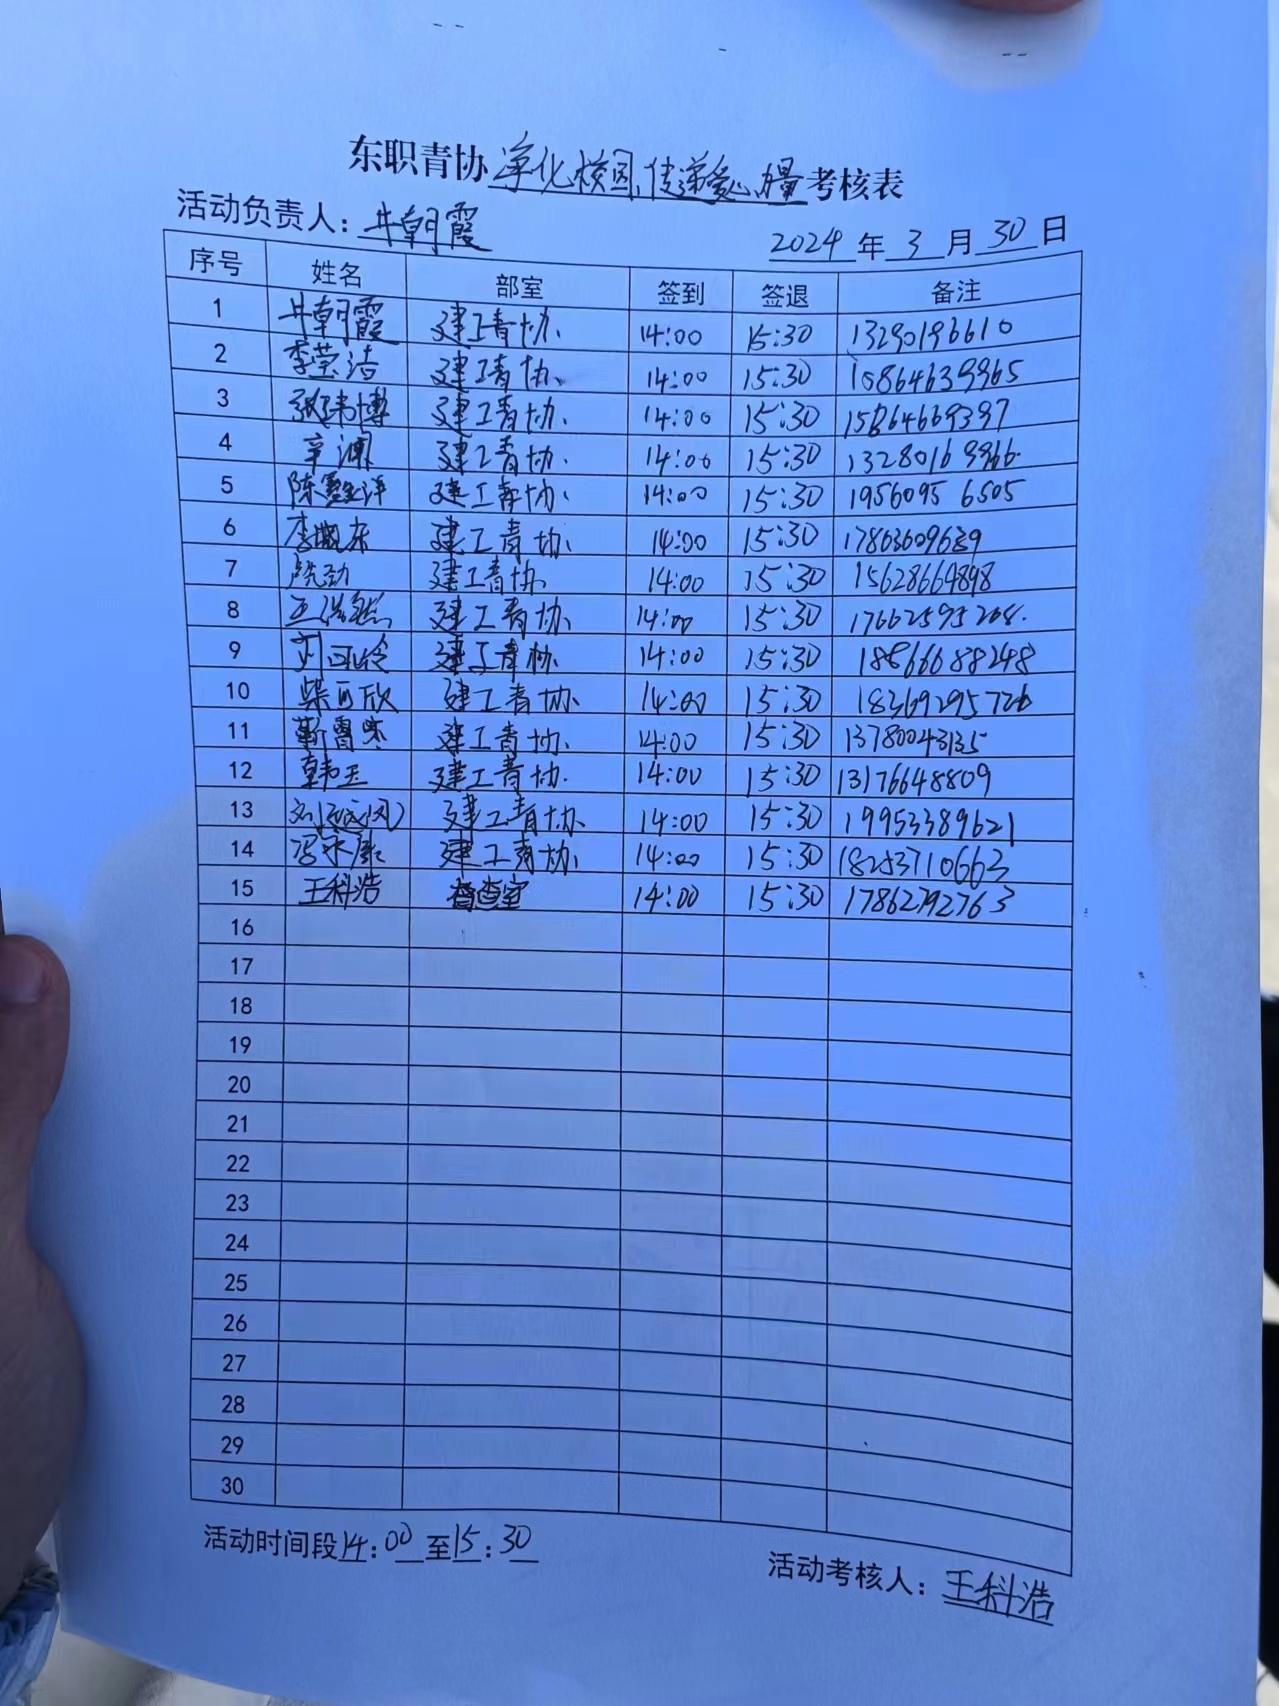 东职青协净化校园、传递爱心力量考核表
活动负责人：井朝霞
2024年3月30日
序号 姓名 部室 签到 签退 备注
1 井朝霞 建工青协 14:00 15:30 13290196610
2 李莹洁 建工青协 14:00 15:30 10864639965
3 张韦博 建工青协 14:00 15:30 15864669397
4 辛澜 建工青协 14:00 15:30
5 建工青协 14:00 15:30 19560956505
6 建工青协 14:00 15:30 17863609639
7 建工青协 14:00 15:30 15628664898
8 建工青协 14:00 15:30
9 建工青协 14:00 15:30 18866688248
10 柴可欣 建工青协 14:00 15:30 18369295726
11 建工青协 14:00 15:30 13780043135
12 韩玉 建工青协 14:00 15:30 13176648809
13 建工青协 14:00 15:30 19953389621
14 冯永康 建工青协 14:00 15:30 18253710663
15 王科浩 督查室 14:00 15:30 17862792763
16
17
18
19
20
21
22
23
24
25
26
27
28
29
30
活动时间段14:00至15:30
活动考核人：王科浩